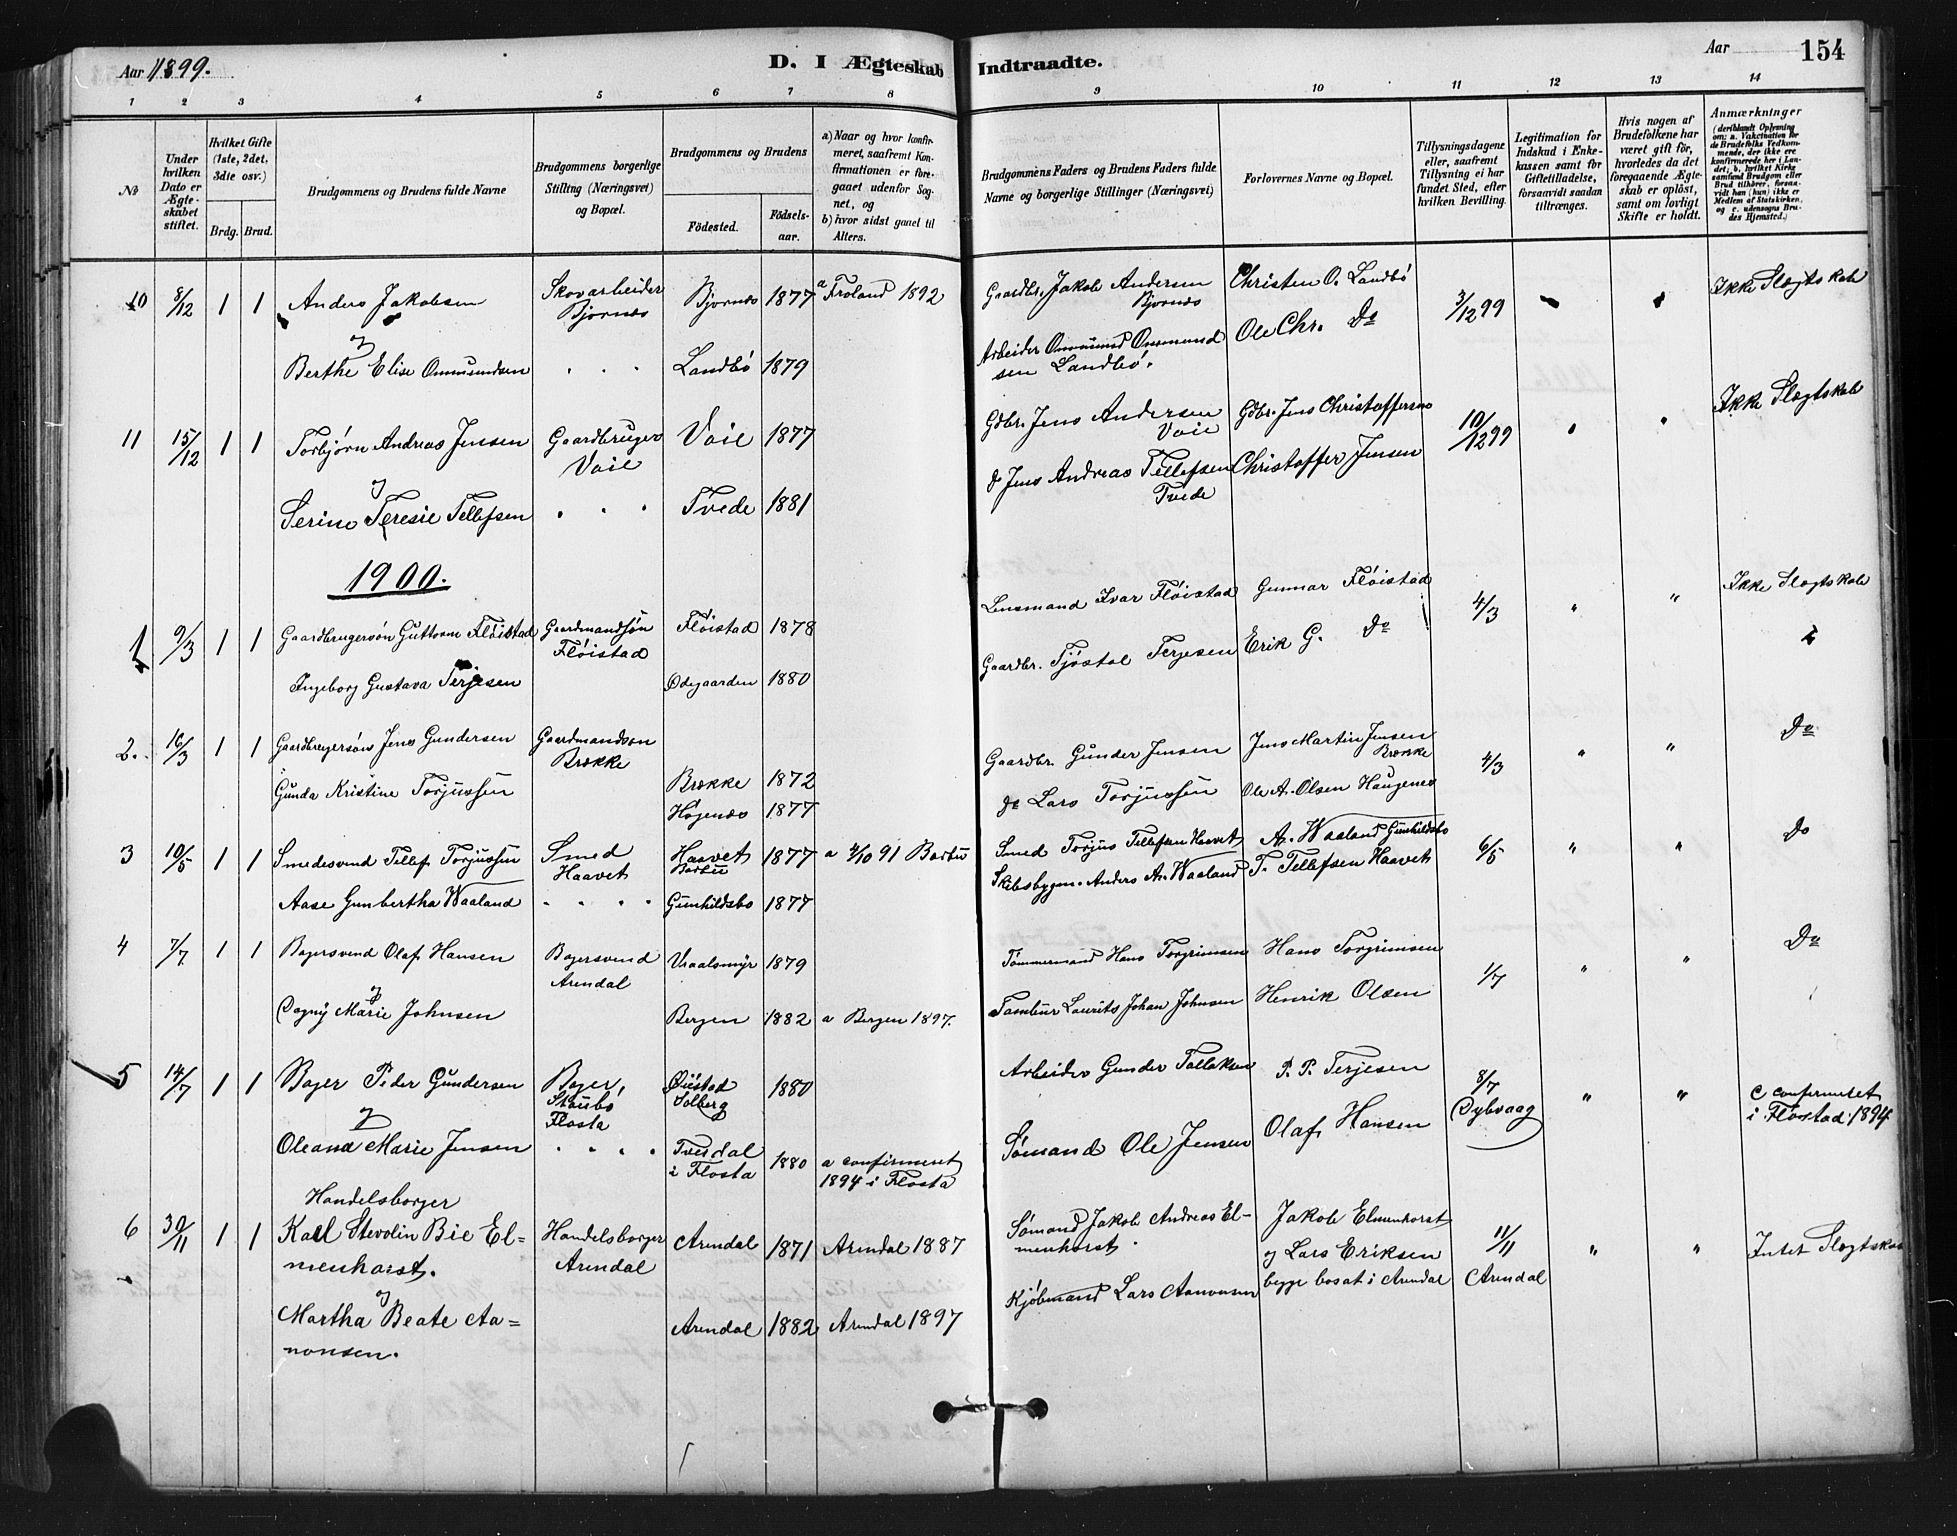 Aar 1899.
D. I Ægteskab Indtraadte.
Aar
154
1 2 3 4 5 6 7 8 9 10 11 12 13 14
No
Under hvilken Dato er Ægteskabet stiftet.
Hvilket Gifte (1ste, 2det, 3die osv.)
Brdg. Brud.
Brudgommens og Brudens fulde Navne
Brudgommens borgerlige Stilling (Næringsvei) og Bopæl.
Brudgommens og Brudens
Födested.
Födselsaar.
a) Naar og hvor konfirmeret, saafremt Konfirmationen er foregaaet udenfor Sognet, og
b) hvor sidst gaaet til Alters.
Brudgommens Faders og Brudens Faders fulde Navne og borgerlige Stillinger (Næringsvei)
Forlovernes Navne og Bopæl.
Tillysningsdagene eller, saafremt Tillysning ei har fundet Sted, efter hvilken Bevilling.
Legitimation for Indskud i Enkekassen samt for Giftetilladelse, forsaavidt saadan tiltrænges.
Hvis nogen af Brudefolkene har været gift för, hvorledes da det foregaaende Ægteskab er oplöst, samt om lovligt Skifte er holdt.
Anmærkninger
(deriblandt Oplysning om: a. Vakcination for de Brudefolks Vedkommende, der ikke ere konfirmerede her i Landet; b. hvilket Kirkesamfund Brudgom eller Brud tilhörer, forsaavidt han (hun) ikke er Medlem af Statskirken, og c. udensogns Brudes Hjemsted.)
10 8/12 1 1 Anders Jakobsen
Skovarbeider Bjornæs
Bjornæs 1877 a Froland 1892
Gaardbr. Jakob Andersen Bjornæs
Christen O. Landbö
3/12 99
Ikke Slægtskab
og
Berthe Elise Ommundsen
Landbö 1879
Arbeider Ommund Ommundsen Landbö.
Ole Chr. Do
11 15/12 1 1 Torbjørn Andreas Jensen
Gaardbruger Vaie
Vaie 1877
Gdbr. Jens Andersen Vaie
Gdbr. Jens Christoffersen
10/12 99
Ikke Slægtskab
og
Serine Teresie Tellefsen
Tvede 1881
d Jens Andreas Tellefsen Tvede
Christoffer Jensen
1900.
1 9/3 1 1 Gaardbrugersön Guttorm Flöistad
Gaardmandsön Flöistad
Flöistad 1878
Lensmand Ivar Flöistad
Gunnar Flöistad
4/3 " "
Ikke Slægtskab
Ingeborg Gustava Terjesen
Ødegaarden 1880
Gaardbr. Tjöstol Terjesen
Erik G. Do
2. 16/3 1 1 Gaardbrugersøn Jens Gundersen
Gaardmandsøn Brække
Brække 1872
Gaardbr. Gunder Jensen
Jens Martin Jensen Brække
4/3 " "
Do
Gunda Kristine Torjussen
Høgenæs 1877
do Lars Torjussen
Ole A. Olsen Haugenes
3 10/5 1 1 Smedesvend Tellef Torjussen
Smed Haavet
Haavet Barbu 1877 a 4/10 91 Barbu
Smed Torjus Tellefsen Haavet
A. Waaland Gunhildsbo
6/5 " "
Do
Aase Gunbertha Waaland
Gunhildsbo 1877
Skibsbygm. Anders A. Waaland
T. Tellefsen Haavet
4 7/7 1 1 Bagersvend Olaf Hansen
Bagersvend Arendal
Vraalsmyr 1879
Tømmermand Hans Torgrimsen
Hans Torgrimsen
1/7 " "
Do
og
Dagny Marie Johnsen
Bergen 1882 a Bergen 1897.
Tambur Laurits Johan Johnsen
Henrik Olsen
5 14/7 1 1 Bager Peder Gundersen
Bager, Staubö Flosta
Øiestad Solberg 1880
Arbeider Gunder Tallaksen
P. P. Terjesen
8/7 Dybvaag " "
c confirmeret i Flostad 1894
og
Oleana Marie Jensen
Tvedal i Flosta 1880 a confirmeret 1894 i Flosta
Sømand Ole Jensen
Olaf Hansen
Handelsborger
6 30/11 1 1 Karl Stevolin Bie Elmenhorst.
Handelsborger Arendal
Arendal 1871 Arendal 1887
Sømand Jakob Andreas Elmenhorst
Jakob Elmenhorst og Lars Eriksen begge bosat i Arendal
11/11 Arendal " "
Intet Slægtskab
og
Martha Beate Aanonsen.
Arendal 1882 Arendal 1897
Kjöbmand Lars Aanonsen